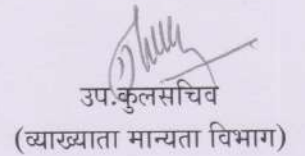 उप.कुलसचिव
(व्याख्याता मान्यता विभाग)